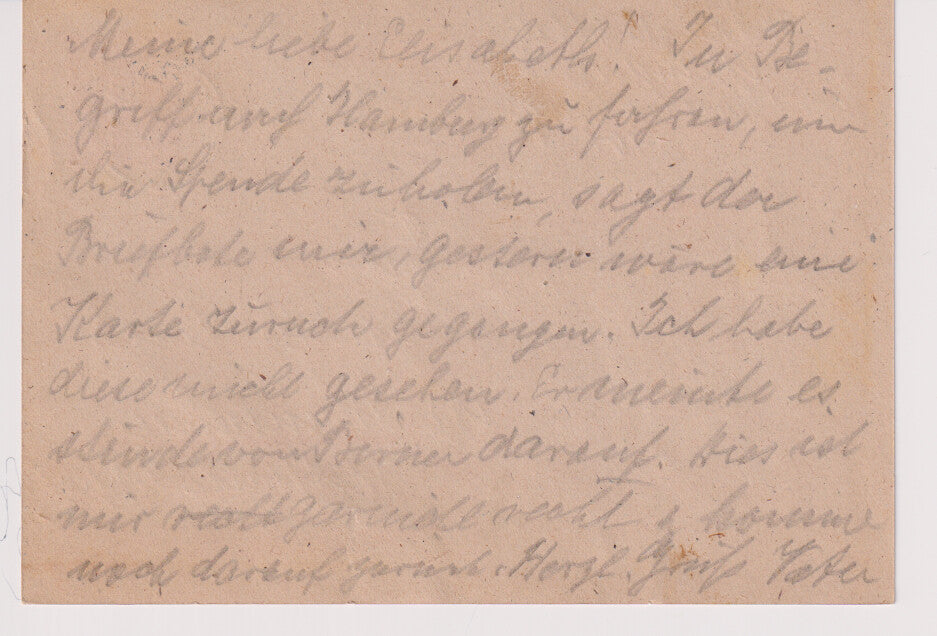 Meine liebe Elisabeth! In Be-
griff nach Hamburg zu fahren, um
die Spende zu holen, sagt der
Briefbote mir, gestern wäre eine
Karte zurück gegangen. Ich habe
diese nicht gesehen. Er meinte es
stünde von darauf. Dies ist
mir garnicht recht & komme
noch darauf zurück. Herzl. Gruß Vater